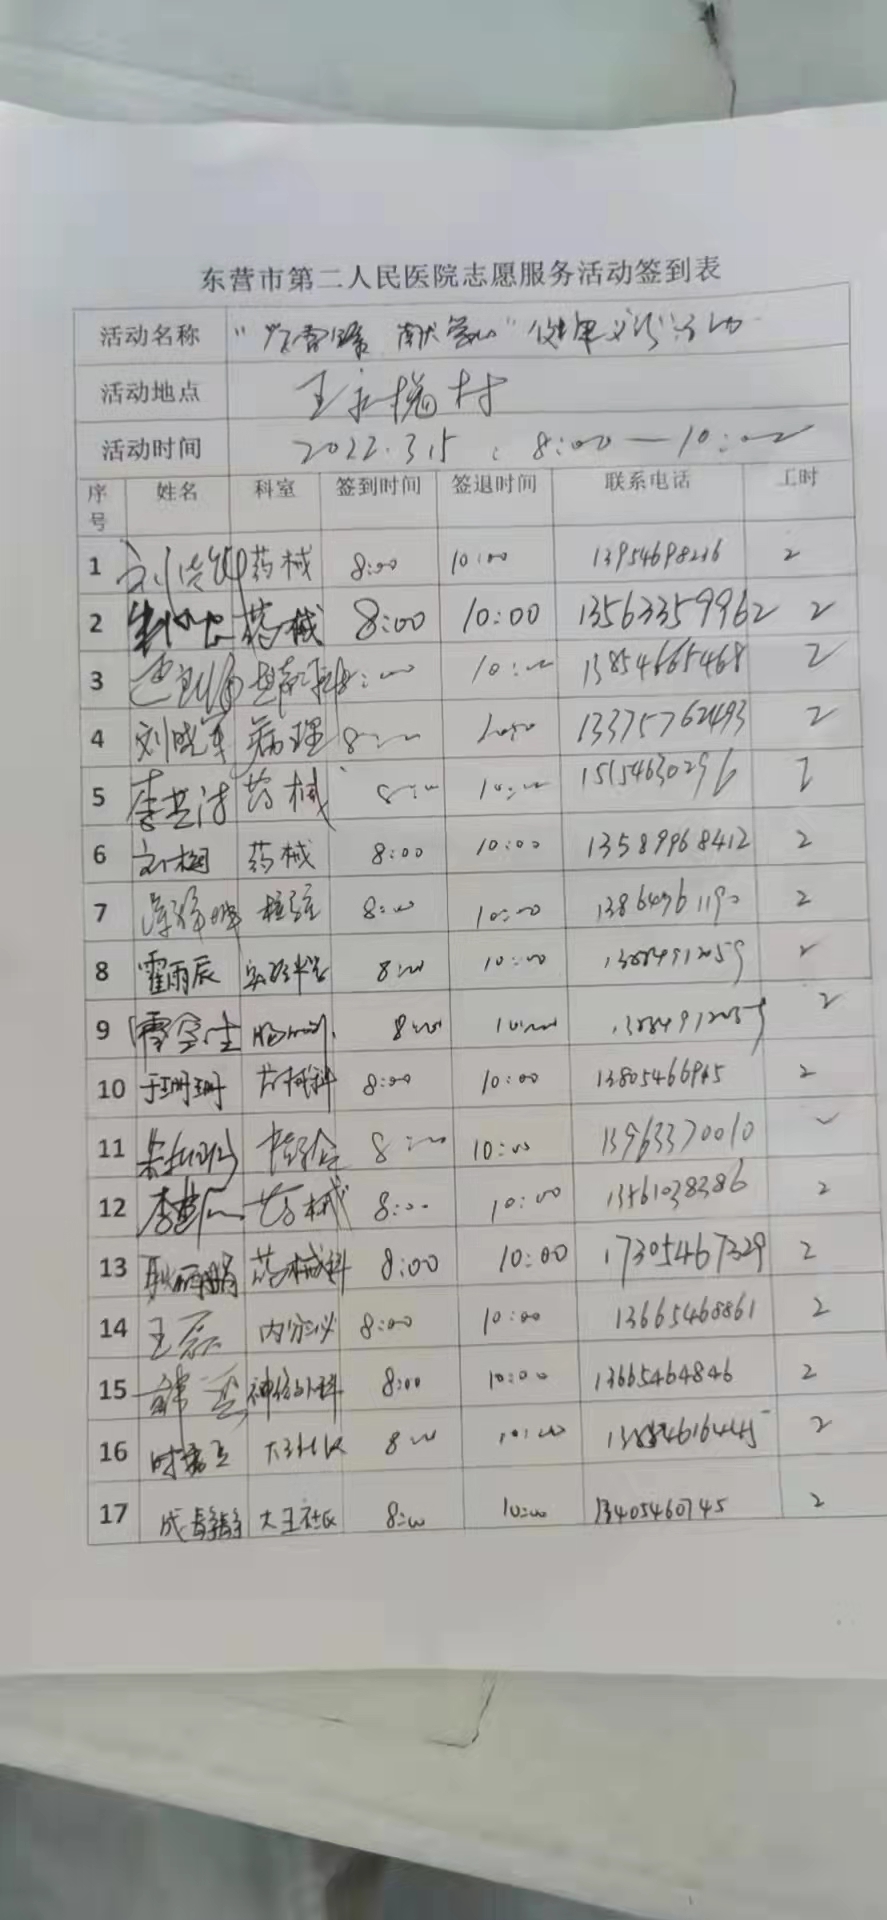 东营市第二人民医院志愿服务活动签到表
活动名称 "学雷锋 献爱心" 健康义诊活动
活动地点 王 村
活动时间 2022.3.15 : 8:00—10:00
序号 姓名 科室 签到时间 签退时间 联系电话 工时
1 药械 8:00 10:00 13954698236 2
2 药械 8:00 10:00 13563359962 2
3 8:00 10:00 13854665468 2
4 刘晓军 病理 8:00 10:00 13375762493 2
5 李 药械 8:00 10:00 15154630296 2
6 刘 药械 8:00 10:00 13589968412 2
7 检验 8:00 10:00 13864961190 2
8 霍雨辰 8:00 10:00 2
9 8:00 10:00 2
10 于珊珊 药械科 8:00 10:00 2
11 检验 8:00 10:00 13963370010
12 李 药械 8:00 10:00 13561038386 2
13 耿 药械科 8:00 10:00 17305467329 2
14 王磊 内分泌 8:00 10:00 13665468861 2
15 神经外科 8:00 10:00 13665464846 2
16 大王社区 8:00 10:00 2
17 成静静 大王社区 8:00 10:00 13405460745 2